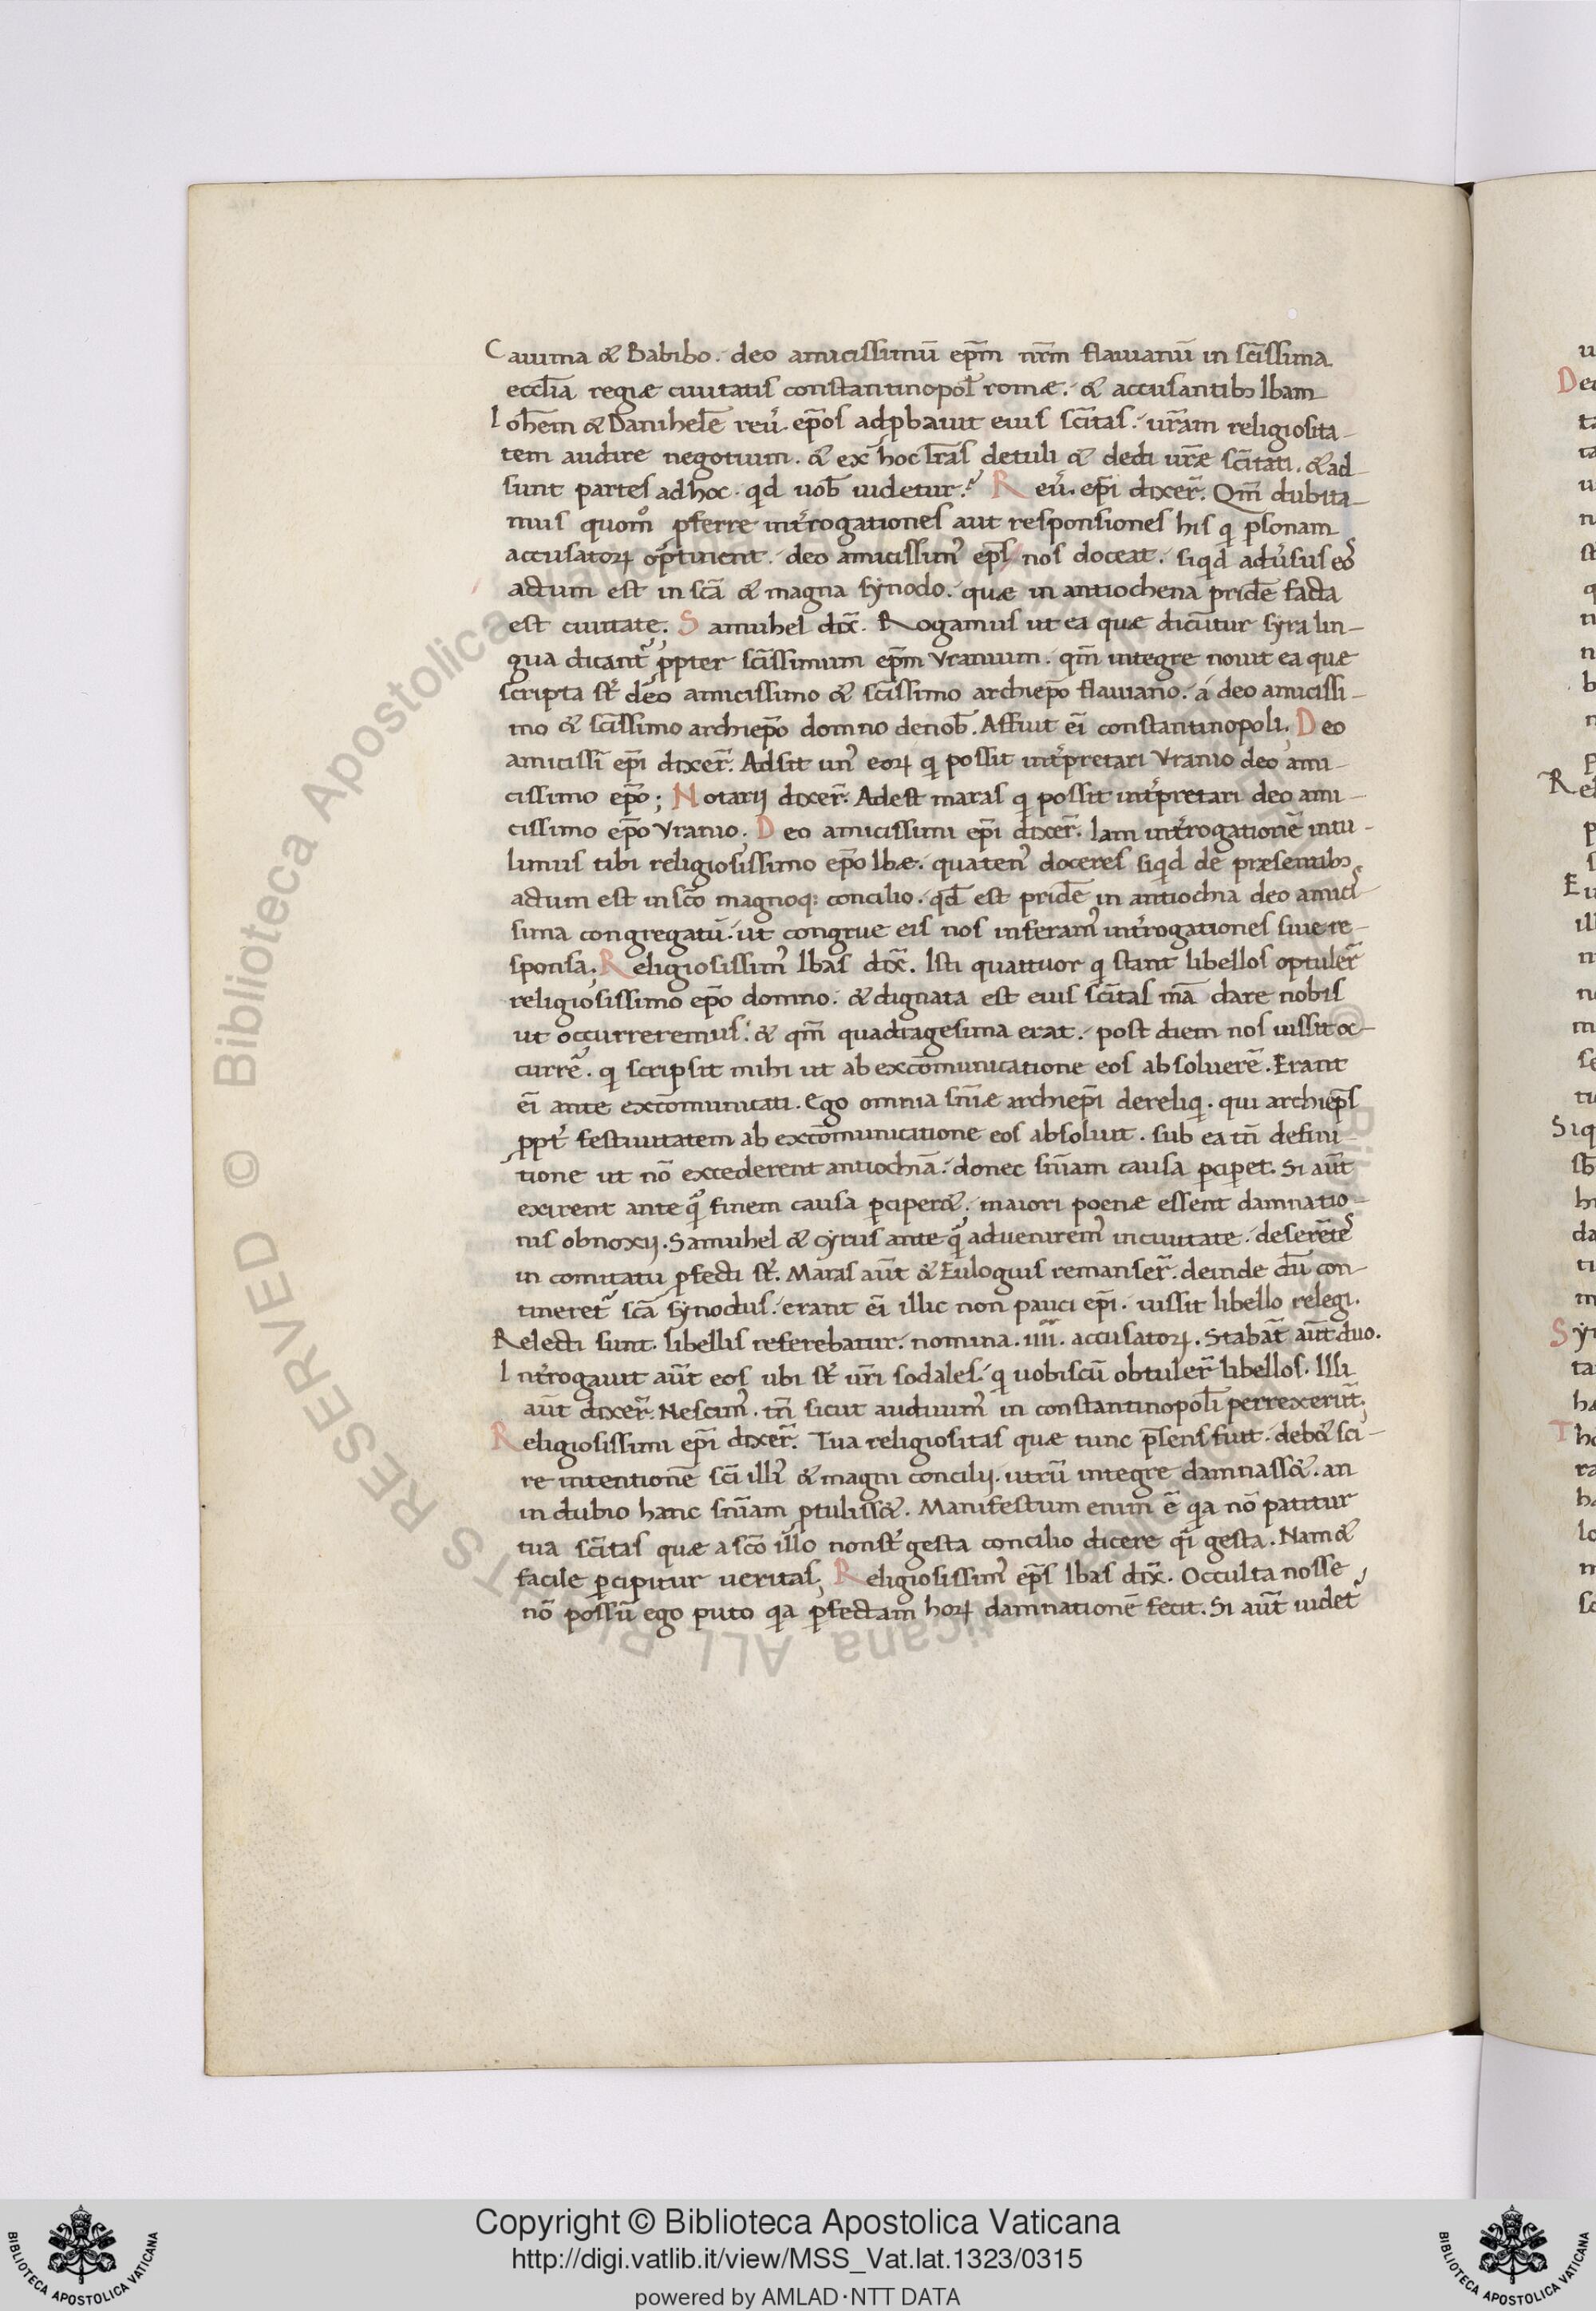 Cauima & Babibo. deo amicissimū ep̄m nr̄m flauianū in sc̄issima
eccl̄ia regiæ ciuitatis constantinopol̄ romæ. & accusantib; Ibam
Ioh̄em & Danihelē reu. ep̄os adpbauit eius sc̄itas. ur̄am religiosita-
tem audire negotium. & ex hoc lr̄as detuli & dedi ur̄æ sc̄itati. & ad-
sunt partes ad hoc. qd uob̄ uidetur. Reu. ep̄i dixer̄. Qm̄ dubita-
mus quomo pferre introgationes aut responsiones his q psonam
accusatoꝝ optinent. deo amicissim' ep̄s nos doceat. siqd adusus eos
actum est in sc̄a & magna synodo. quæ in antiochena pridē facta
est ciuitate. Samuhel dix̄. Rogamus ut ea quæ dicūtur syra lin-
gua dicant ppter sc̄issimum ep̄m Vranium. qm̄ integre nouit ea quæ
scripta st deo amicissimo & sc̄issimo archiep̄o flauiano. á deo amicissi-
mo & sc̄issimo archiep̄o domno denob̄. Affuit ei constantinopoli. Deo
amicissi ep̄i dixer̄. Adsit un' eoꝝ q possit intpretari Vranio deo ami-
cissimo ep̄o; Notarij dixer̄. Adest maras q possit intpretari deo ami-
cissimo ep̄o Vranio. Deo amicissimi ep̄i dixer̄. Iam introgationē intu-
limus tibi religiosissimo ep̄o Ibæ. quaten' doceres siqd de præsentib;
actum est in sc̄o magnoq: concilio. qd̄ est pridē in antiochia deo amicis
sima congregatū. ut congrue eis nos inferam' introgationes siue re-
sponsa. Religiosissim' Ibas dix̄. Isti quattuor q stant libellos optuler̄
religiosissimo ep̄o domno. & dignata est eius sc̄itas m̄a dare nobis
ut occurreremus. & qm̄ quadragesima erat. post diem nos iussit oc-
currē. q scripsit mihi ut ab excōmunicatione eos absoluerē. Erant
ei ante excōmunicati. Ego omnia sn̄iæ archiep̄i dereliq. qui archiep̄s
ppt festiuitatem ab excōmunicatione eos absoluit. sub ea tn̄ defini-
tione ut nō excederent antiochiā. donec sn̄iam causa pciperet. Si aūt
exirent ante q finem causa pciper&. maiori poenæ essent damnatio-
nis obnoxij. Samuhel & cyrus ante q aduenirem' in ciuitate. deserētes
in comitatu pfecti st. Maras aūt & Eulogius remanser̄. deinde dū con-
tineret sc̄a synodus. erant ei illic non pauci ep̄i. iussit libello relegi.
Relecti sunt. libellis referebatur. nomina. iiii. accusatoꝝ. Stabāt aūt duo.
Introgauit aūt eos ubi st ur̄i sodales. q uobiscū obtuler̄ libellos. Illi
aūt dixer̄. Nescim'. tn̄ sicut audiuim' in constantinopol̄i perrexerūt.
Religiosissimi ep̄i dixer̄. Tua religiositas quæ tunc p̄sens fuit. deb& sci-
re intentionē sc̄i illi' & magni concilij. utrū integre damnass&. an
in dubio hanc sn̄iam ptuliss&. Manifestum enim ē qa nō patitur
tua sc̄itas quæ a sc̄o illo non st gesta concilio dicere qi gesta. Nam &
facile pcipitur ueritas. Religiosissim' ep̄s Ibas dix̄. Occulta nosse
nō possū ego puto qa pfectam hoꝝ damnationē fecit. Si aūt uidet
Copyright © Biblioteca Apostolica Vaticana
http://digi.vatlib.it/view/MSS_Vat.lat.1323/0315
powered by AMLAD·NTT DATA